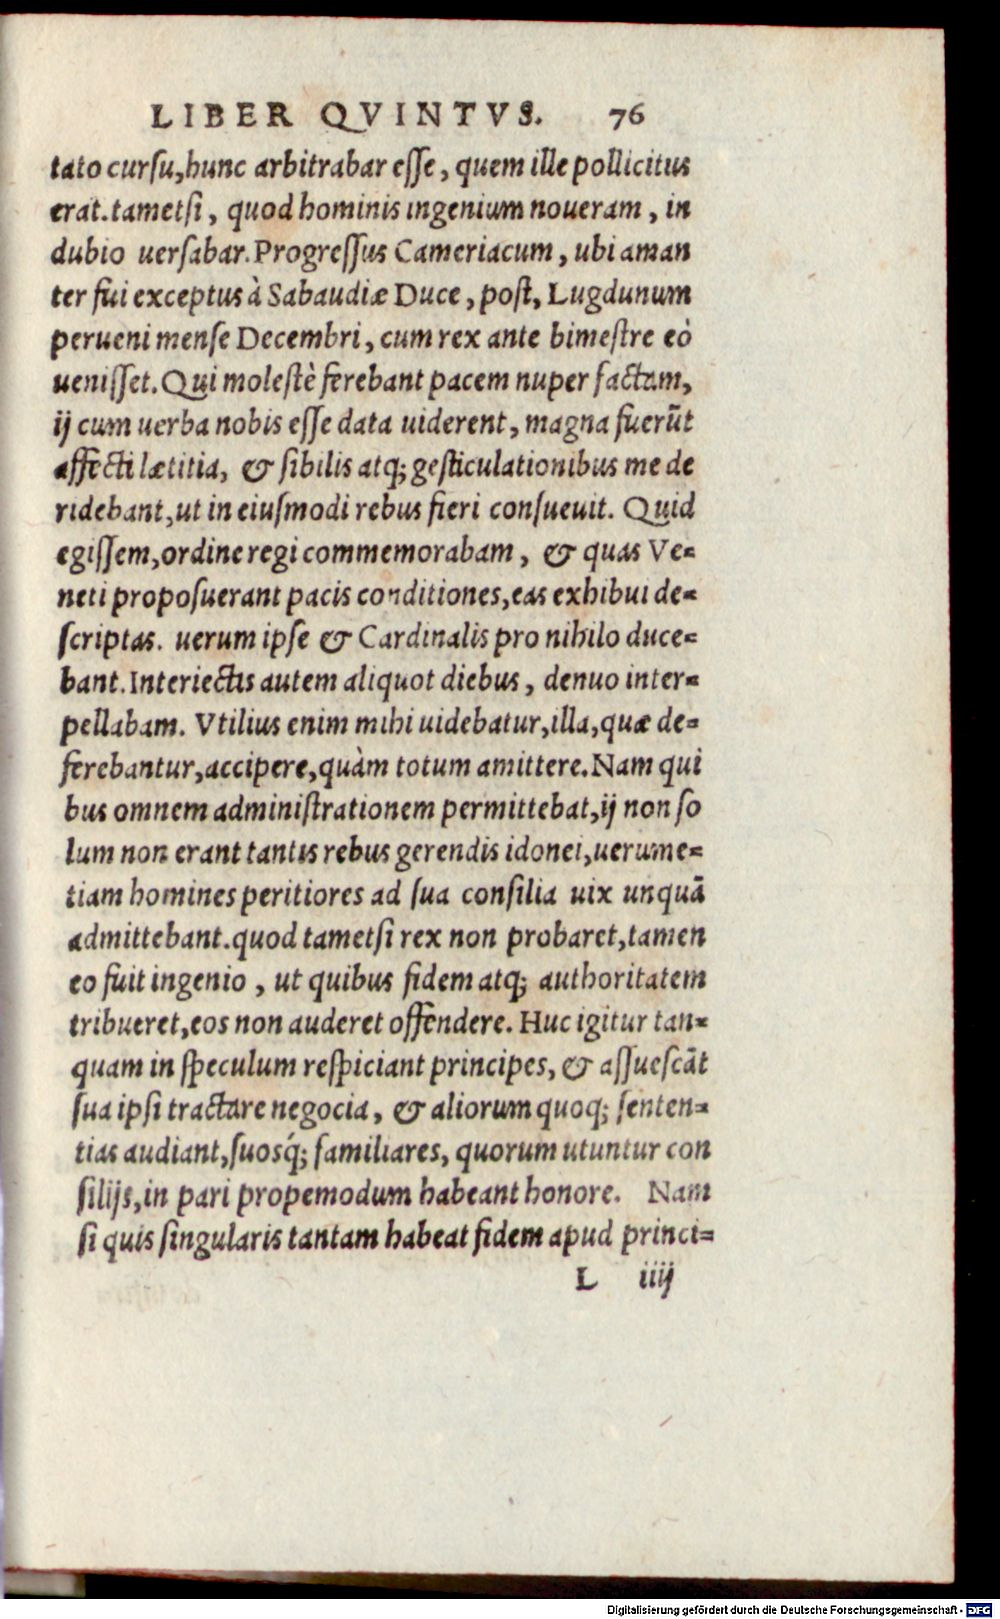 LIBER QVINTVS. 76
tato cursu, hunc arbitrabar esse, quem ille pollicitus
erat. tametsi, quod hominis ingenium noueram, in
dubio uersabar. Progressus Cameriacum, ubi aman
ter fui exceptus à Sabaudiæ Duce, post, Lugdunum
perueni mense Decembri, cum rex ante bimestre eò
uenisset. Qui molestè ferebant pacem nuper factam,
ij cum uerba nobis esse data uiderent, magna fuerũt
affecti lætitia, & sibilis atq; gesticulationibus me de
ridebant, ut in eiusmodi rebus fieri consueuit. Quid
egissem, ordine regi commemorabam, & quas Ve-
neti proposuerant pacis conditiones, eas exhibui de-
scriptas. uerum ipse & Cardinalis pro nihilo duce-
bant. Interiectis autem aliquot diebus, denuo inter-
pellabam. Vtilius enim mihi uidebatur, illa, quæ de-
ferebantur, accipere, quàm totum amittere. Nam qui
bus omnem administrationem permittebat, ij non so
lum non erant tantis rebus gerendis idonei, uerume-
tiam homines peritiores ad sua consilia uix unquã
admittebant. quod tametsi rex non probaret, tamen
eo fuit ingenio, ut quibus fidem atq; authoritatem
tribueret, eos non auderet offendere. Huc igitur tan-
quam in speculum respiciant principes, & assuescãt
sua ipsi tractare negocia, & aliorum quoq; senten-
tias audiant, suosq́; familiares, quorum utuntur con
silijs, in pari propemodum habeant honore. Nam
si quis singularis tantam habeat fidem apud princi-
L iiij
Digitalisierung gefördert durch die Deutsche Forschungsgemeinschaft - DFG